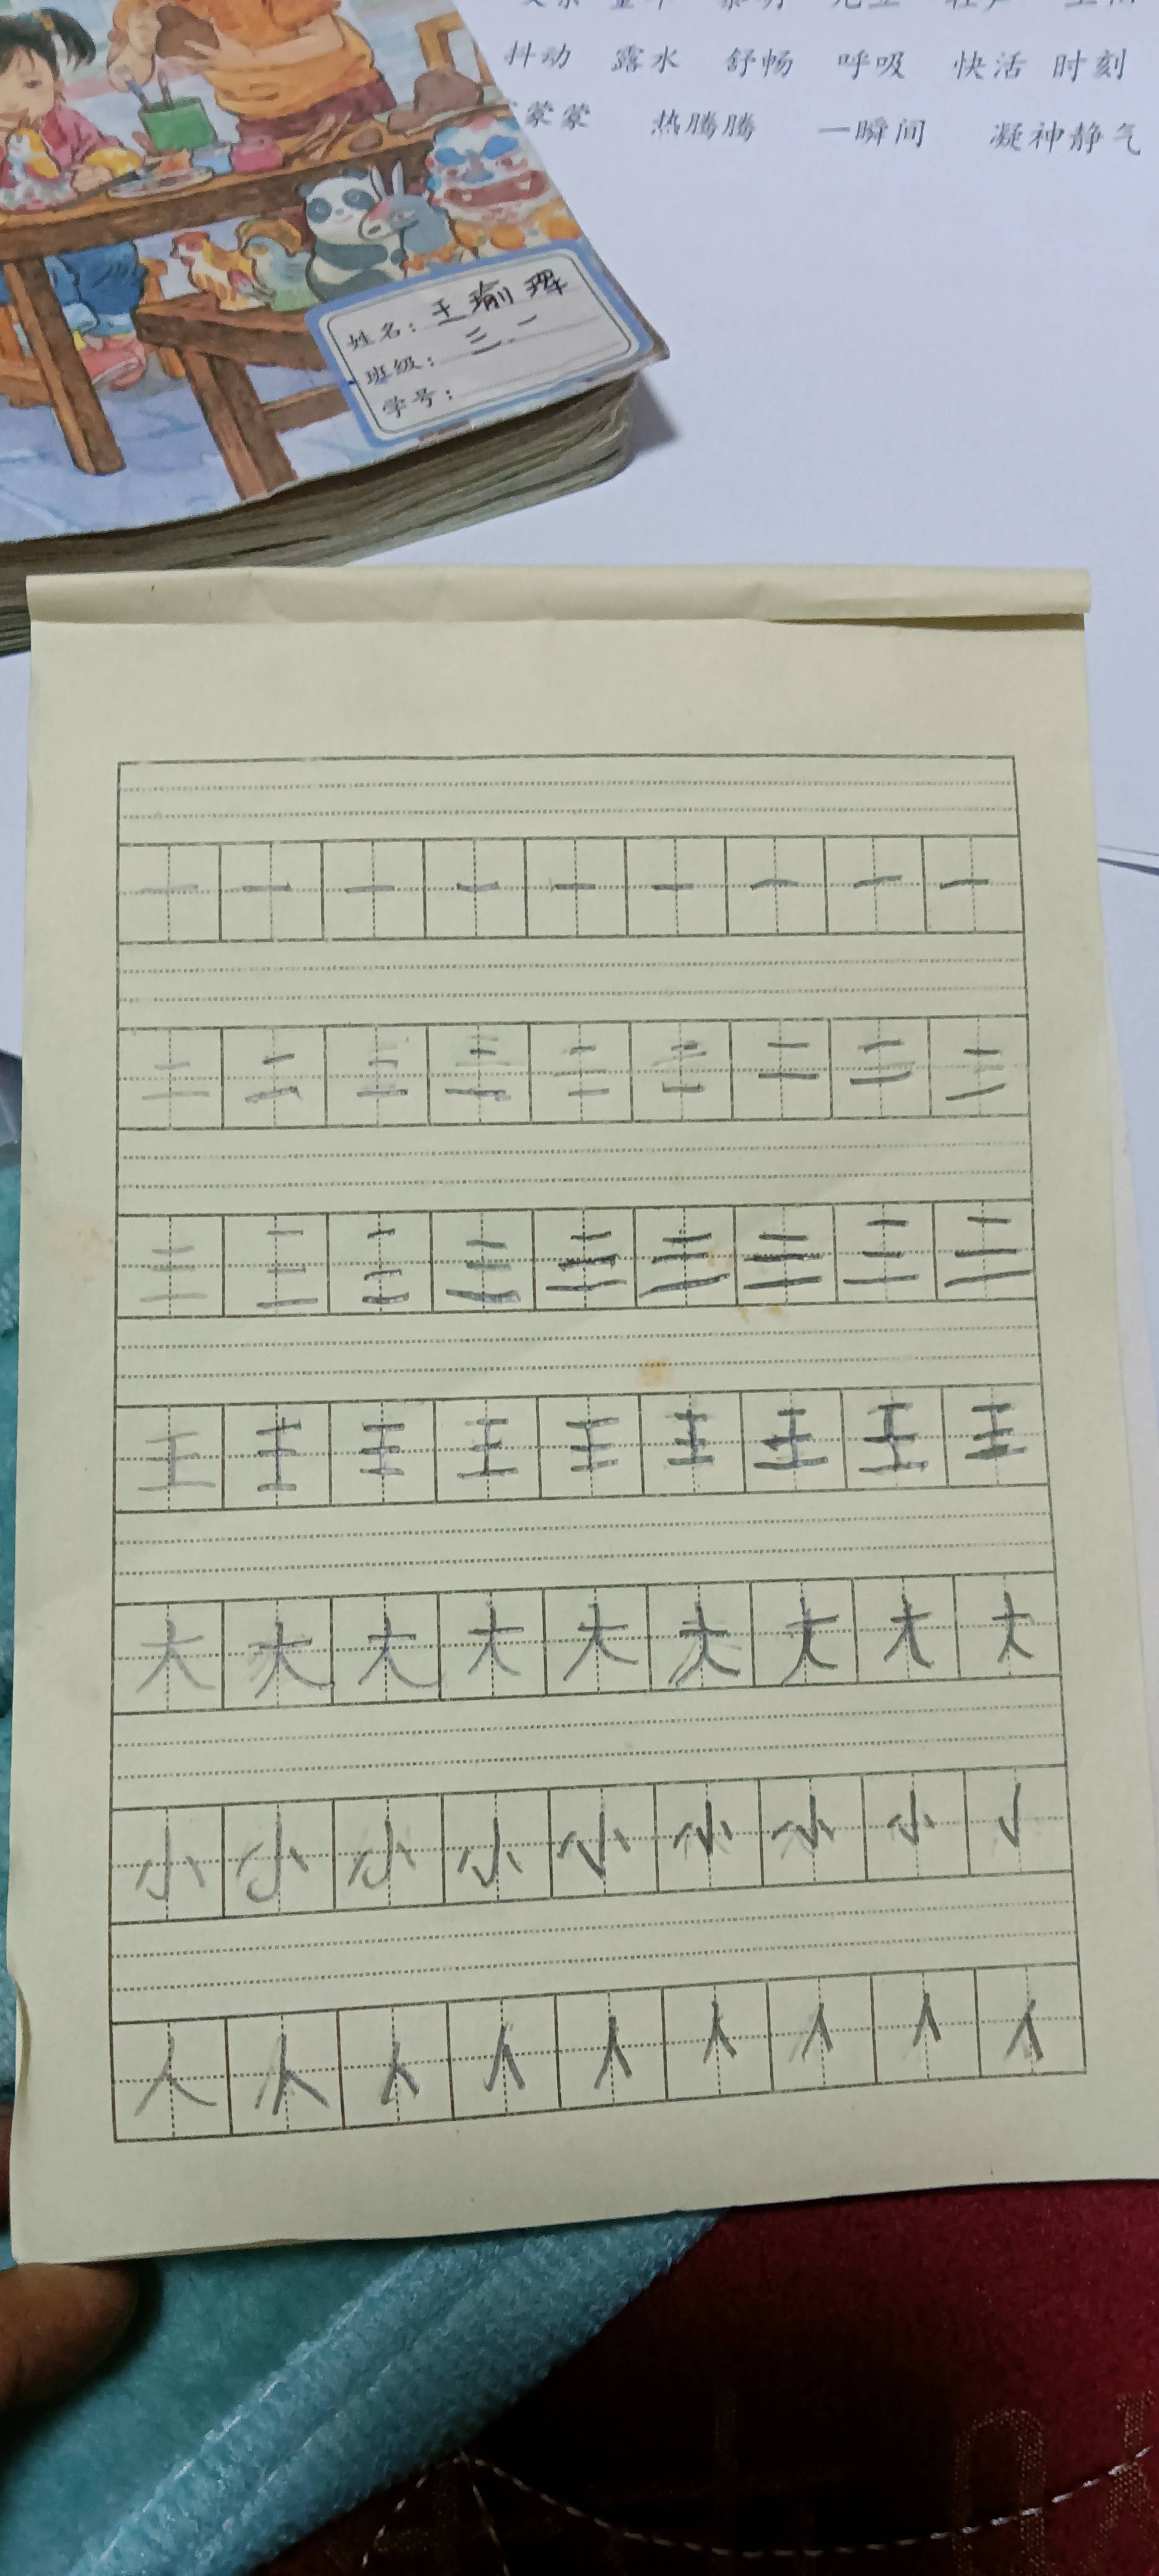 抖动 露水 舒畅 呼吸 快活 时刻
蒙蒙 热腾腾 一瞬间 凝神静气
姓名：王瑜珲
班级：三.二
学号：
一 一 一 一 一 一 一 一 一
二 二 二 二 二 二 二 二 二
三 三 三 三 三 三 三 三 三
王 王 王 王 王 王 王 王 王
大 大 大 大 大 大 大 大 大
小 小 小 小 小 小 小 小
人 人 人 人 人 人 人 人 人